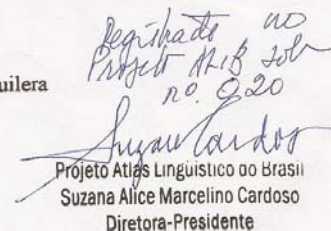 Registrado no
Projeto ALiB sob
nº. 020
uilera
Suzana Cardoso
Projeto Atlas Lingüístico do Brasil
Suzana Alice Marcelino Cardoso
Diretora-Presidente